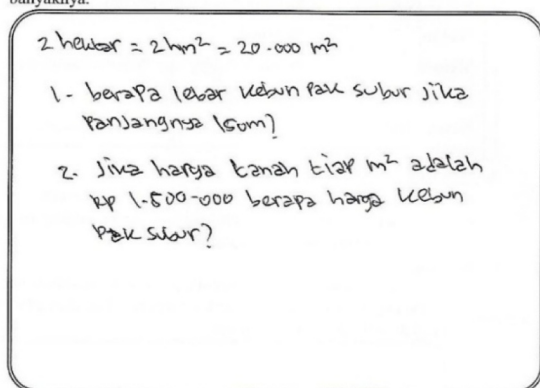 banyaknya.
2 hektar = 2 hm² = 20.000 m²
1. berapa lebar kebun Pak subur jika
Panjangnya 150m?
2. Jika harga tanah tiap m² adalah
Rp 1.500.000 berapa harga kebun
Pak subur?